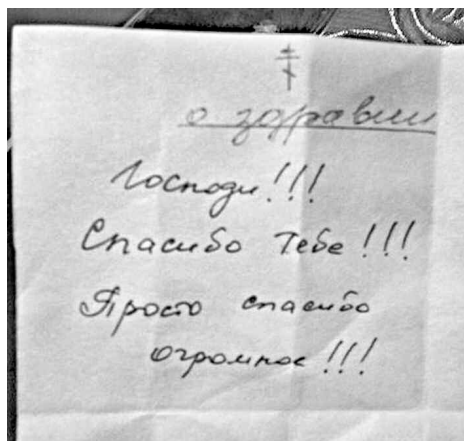 о здравии
Господи!!!
Спасибо Тебе!!!
Просто спасибо
огромное!!!